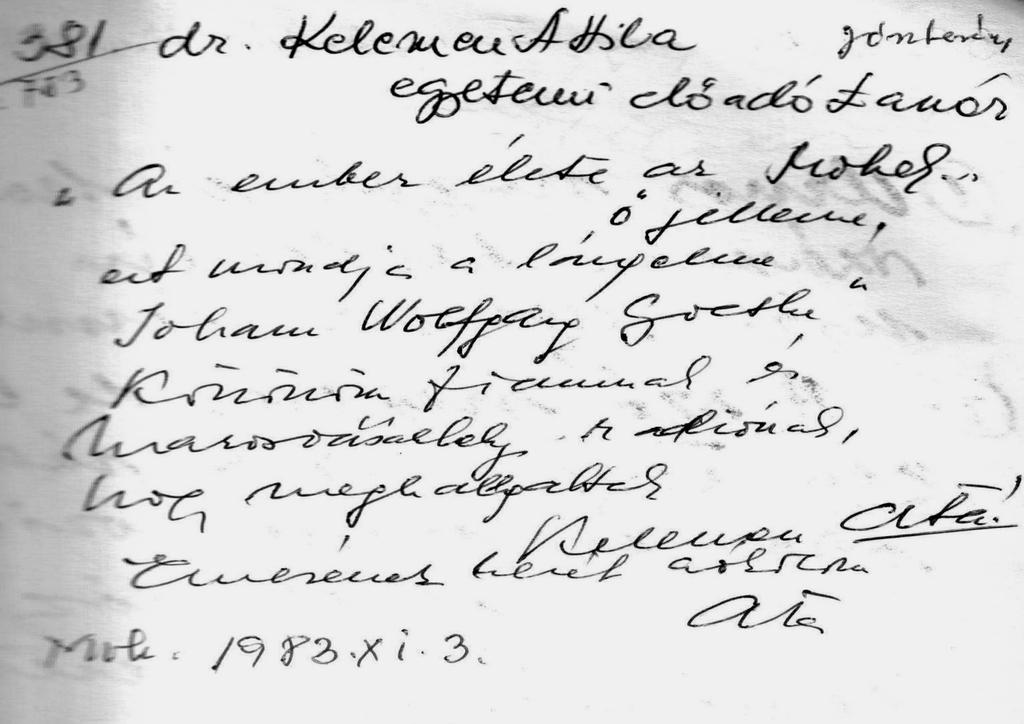 381 dr. Kelemen Attila
703 egyetemi előadó tanár
"Az ember élete az
ő jelleme,
ezt mondja a lángelme
Johann Wolfgang Goethe"
Köszönöm fiamnak és
Marosvásárhely rádiónak,
hogy meghallgattak
Kelemen Ata
kezét csókolom
Ata
Mvh. 1983.XI.3.